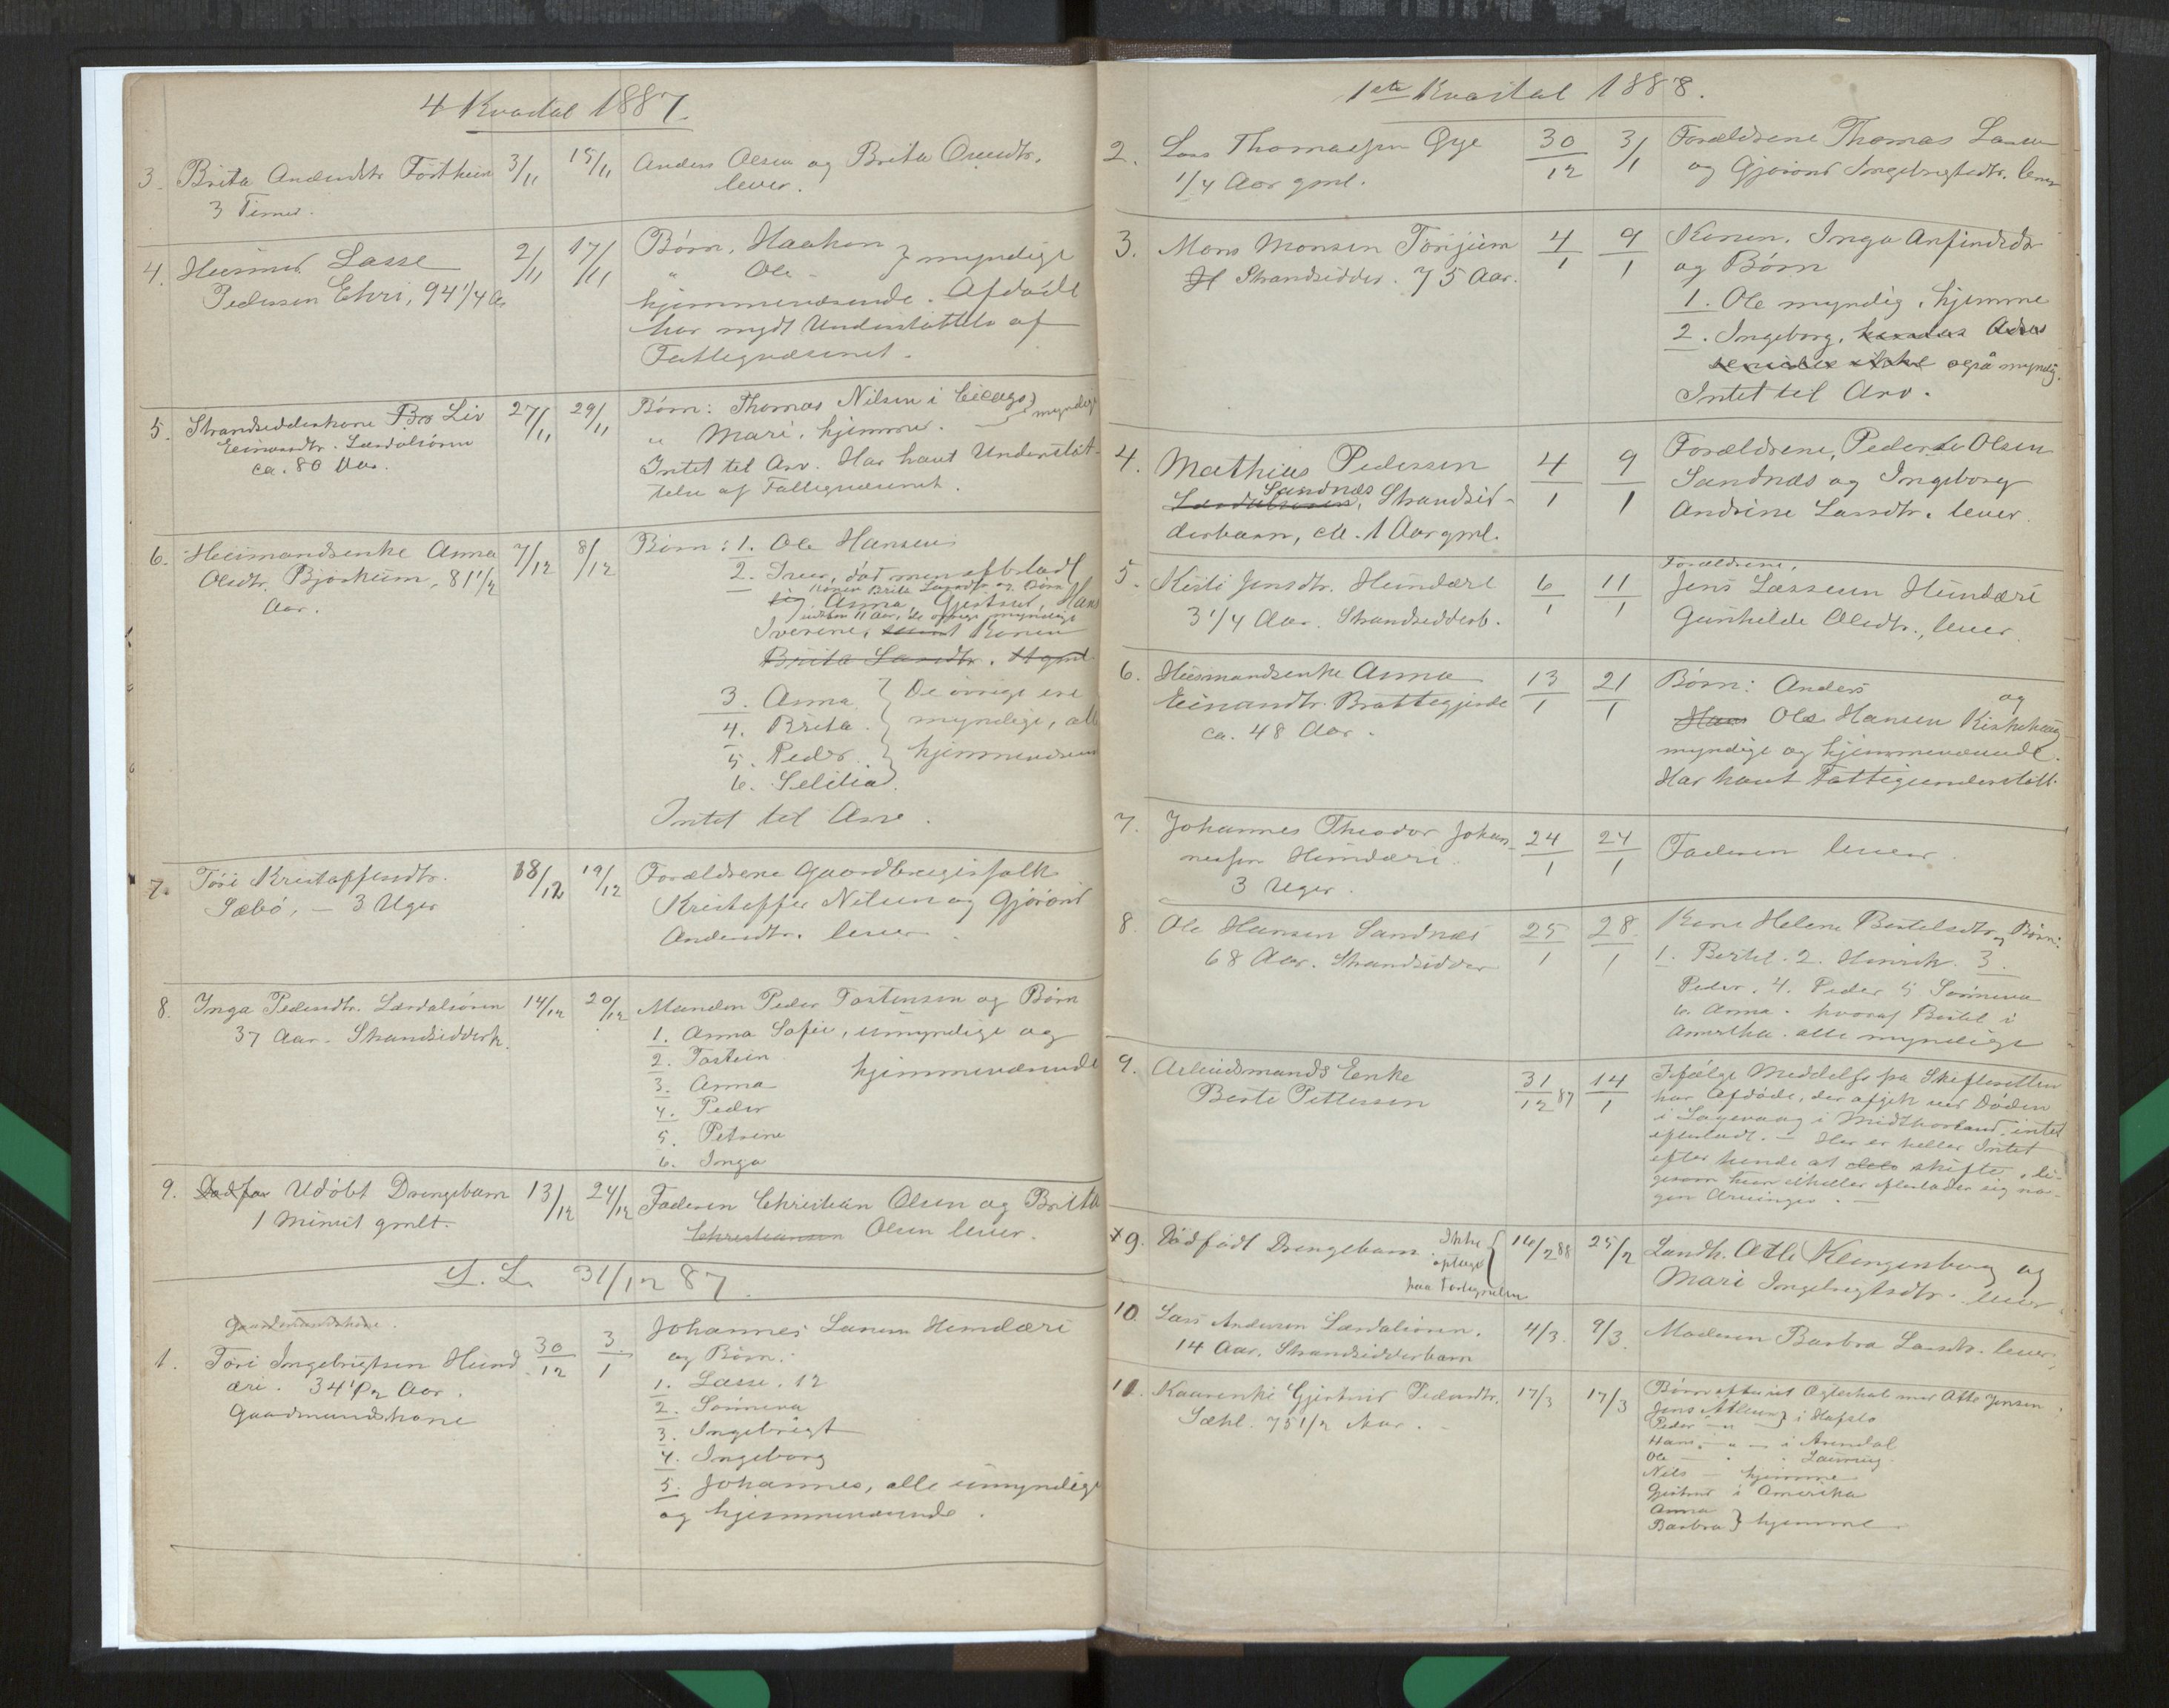 4 Kvartal 1887.
3. Brita Andersdtr Förthun 3/11 15/11 Anders Olsen og Brita
3 Timer. lever.
4. Husmd. Lasse 2/11 17/11 Börn, Haakon } myndige
Pedersen Ehri, 94 1/4 Aar " Ole -
hjemmeværende. Afdöde
har nydt Understöttelse af
Fattigvæsenet.
5. Strandsidderkone Bro Liv 27/11 29/11 Börn: Thomas Nilsen i Cicago } myndige
Einarsdtr. Lærdalsören " Mari, hjemme.
ca. 80 Aar. Intet til Arv. Har havt Understöt-
telse af Fattigvæsenet.
6. Husmandsenke Anna 7/12 8/12 Börn: 1. Ole Hansen
Olsdtr. Bjørkum, 81 1/2 2. Iver, död men efterladt
Aar. Konen Brita Larsdtr og Börn
sig Anna, Gjertrud, Hans
undtn 11 Aar, de övrige myndige
Iversene, samt Konen
Brita Larsdtr.
3. Anna } De övrige ere
4. Brita } myndige, alle
5. Peder } hjemmeværende
6. Selitia
Intet til Arve.
7. Töri Kristoffersdtr. 18/12 19/12 Forældrene Gaardbrugerfolk
Sæbö, - 3 Uger Kristoffer Nilsen og Gjörönd
Andersdtr. lever.
8. Inga Pedersdtr. Lærdalsören 14/12 20/12 Manden Peder Tostensen og Börn
37 Aar - Strandsidderk. 1. Anna Sofie, umyndige og
2. Tostein hjemmeværende
3. Anna
4. Peder
5. Petrine
6. Inga
9. Dödfør Udöbt Drengebarn 13/12 24/12 Faderen Christian Olsen og Brita
1 Minut gmlt. Christiansen Olsen lever.
L. L. 31/12 87.
Gaardmandskone.
1. Töri Ingebrigtsen Hund- 30/12 3/1 Johannes Larsen Hundæri
æri. 34 1/2 Aar. og Börn.
Gaardmandskone 1. Lasse. 12
2. Sönneva
3. Ingebrigt
4. Ingeborg
5. Johannes, alle umyndige
og hjemmeværende.
1ste Kvartal 1888.
2. Lars Thomassen Øye 30/12 3/1 Forældrene Thomas Larsen
1/4 Aar gml. og Gjörönd Ingebrigtsdtr. lever
3. Mons Monsen Tönjum 4/1 9/1 Konen. Inga Arfindsdtr
H Strandsidder. 75 Aar. og Börn
1. Ole myndig, hjemme
2. Ingeborg, også myndig.
Intet til Arv.
4. Mathias Pedersen 4/1 9/1 Forældrene, Peder Olsen
Lærdalsören Sandnæs, Strandsid- Sandnæs og Ingeborg
derbarn, ca. 1 Aar gml. Andrine Larsdtr. lever.
5. Kristi Jensdtr. Hundære 6/1 11/1 Forældrene,
3 1/4 Aar. Strandsidderb. Jens Lassesen Hundæri
Gunhilde Olsdtr., lever.
6. Husmandsenke Anna 13/1 21/1 Börn: Anders og
Einarsdtr. Brattegjerde Hans Ole Hansen Kirkehaug
ca. 48 Aar. myndige og hjemmeværende.
Har havt Fattigunderstött.
7. Johannes Theodor Johan- 24/1 24/1 Faderen lever.
nessen Hundæri.
3 Uger.
8. Ole Hansen Sandnæs 25/1 28/1 Kone Helene Bertelsdtr og Börn:
68 Aar. Strandsidder 1. Bertel. 2. Henrik. 3.
Peder. 4. Peder 5 Sönneva
6. Anna. hvoraf Bertel i
Amerika. alle myndige
9. Arbeidsmands Enke 31/12 87 14/1 Ifølge Meddelse fra Skifteretten
Berte Pettersen har Afdöde, der afgik ved Döden
i Sagevaag i Midthorland intet
efterladt. - Her er heller Intet
efter hende at dele skifte, li-
gesom hun ikke heller efterlader sig no-
gen Arvinger. -
x9. Dödfödt Drengebarn. Ikke 16/2 88 25/2 Landh. Atle Klingenberg og
optaget Mari Ingebrigtsdtr. lever.
paa Fortegnelsen
10. Lars Andersen Lærdalsören. 4/3. 9/3. Moderen Barbra Larsdtr. lever.
14 Aar. Strandsidderbarn
11. Kaarenke Gjertrud Pedersdtr. 17/3 17/3 Börn efter sit Ægteskab med Atle Jensen
Sæhl. 75 1/2 Aar. - Jens Atlesen } i Hafslo
Peder - " -
Hans - " - i Arendal
Ole - " -
Nils - hjemme
Gjertrud i Amerika
Anna
Barbra } hjemme